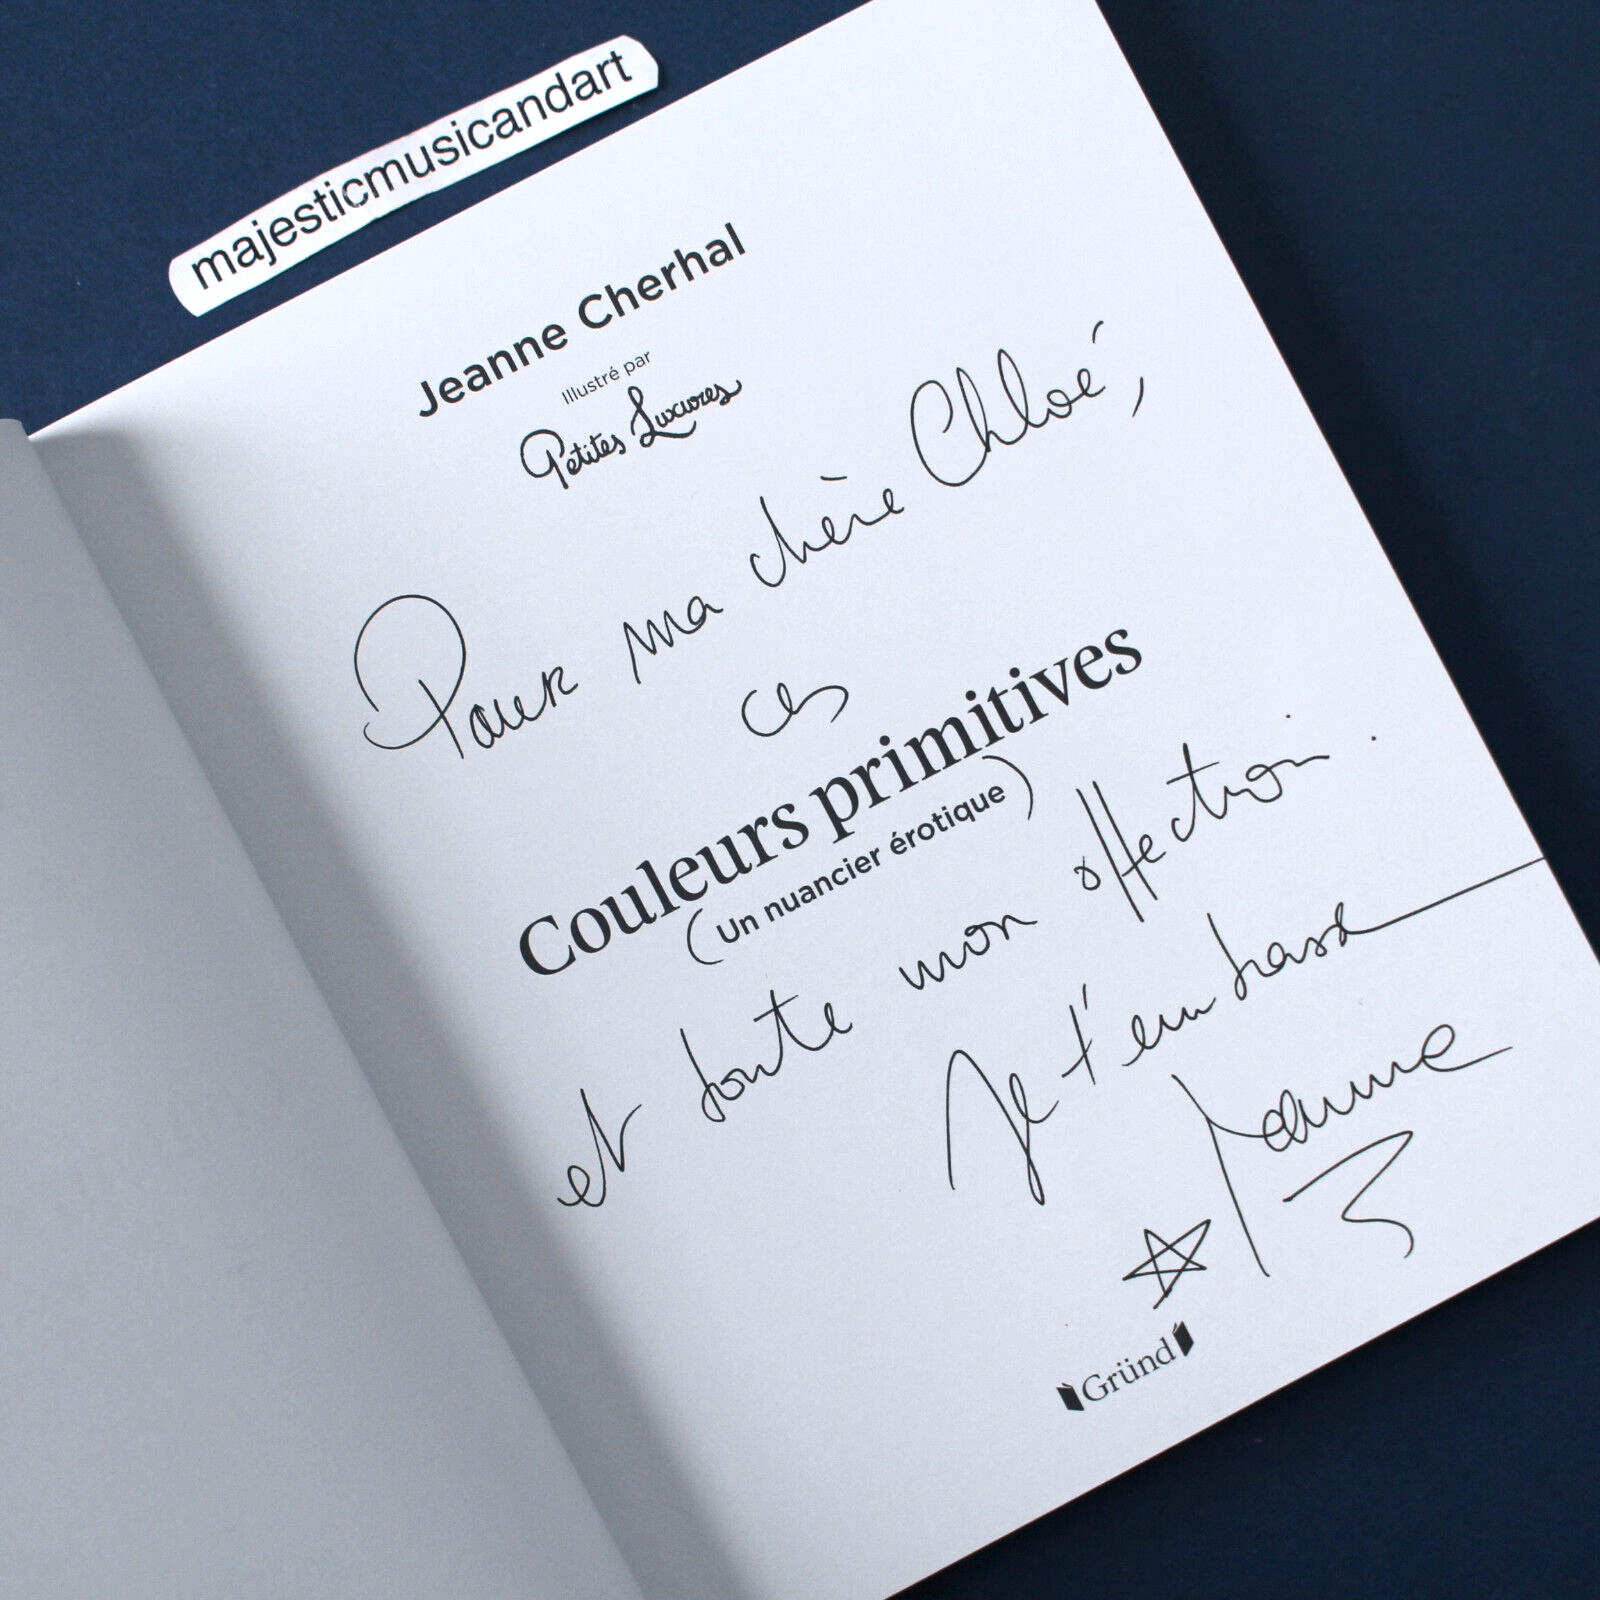 majesticmusicandart
Jeanne Cherhal
Illustré par
Petites Luxures
Pour ma chère Chloé,
ces
Couleurs primitives
(Un nuancier érotique)
et toute mon affection.
Je t'embrasse
Jeanne
Gründ